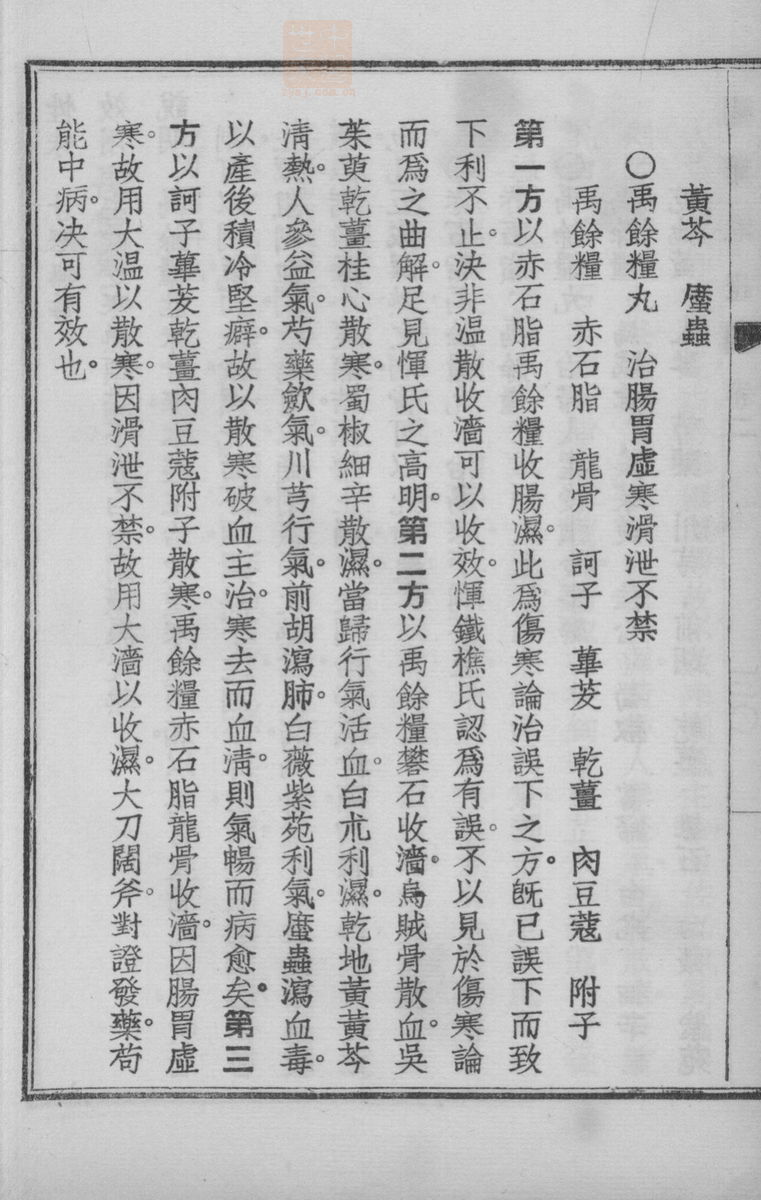 黃芩　䗪蟲
○禹餘糧丸　治腸胃虛寒滑泄不禁
禹餘糧　赤石脂　龍骨　訶子　蓽茇　乾薑　肉豆蔻　附子
第一方以赤石脂禹餘糧收腸濕。此爲傷寒論治誤下之方。旣已誤下而致
下利不止。決非温散收濇可以收效。惲鐵樵氏認爲有誤。不以見於傷寒論
而爲之曲解。足見惲氏之高明。第二方以禹餘糧礬石收濇。烏賊骨散血。吳
茱萸乾薑桂心散寒。蜀椒細辛散濕。當歸行氣活血。白朮利濕。乾地黃黃芩
清熱。人參益氣。芍藥歛氣。川芎行氣。前胡瀉肺。白薇紫苑利氣。䗪蟲瀉血毒。
以產後積冷堅癖。故以散寒破血主治。寒去而血淸。則氣暢而病愈矣。第三
方以訶子蓽茇乾薑肉豆蔻附子散寒。禹餘糧赤石脂龍骨收濇。因腸胃虛
寒。故用大温以散寒。因滑泄不禁。故用大濇以收濕。大刀闊斧。對證發藥。苟
能中病。決可有效也。